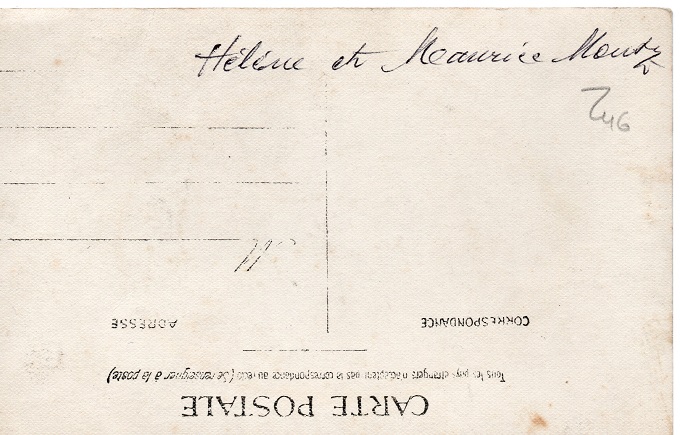 Hélène et Maurice Moutz
246
M
ADRESSE
CORRESPONDANCE
Tous les pays étrangers n'acceptent pas la correspondance au recto (Se renseigner à la poste)
CARTE POSTALE